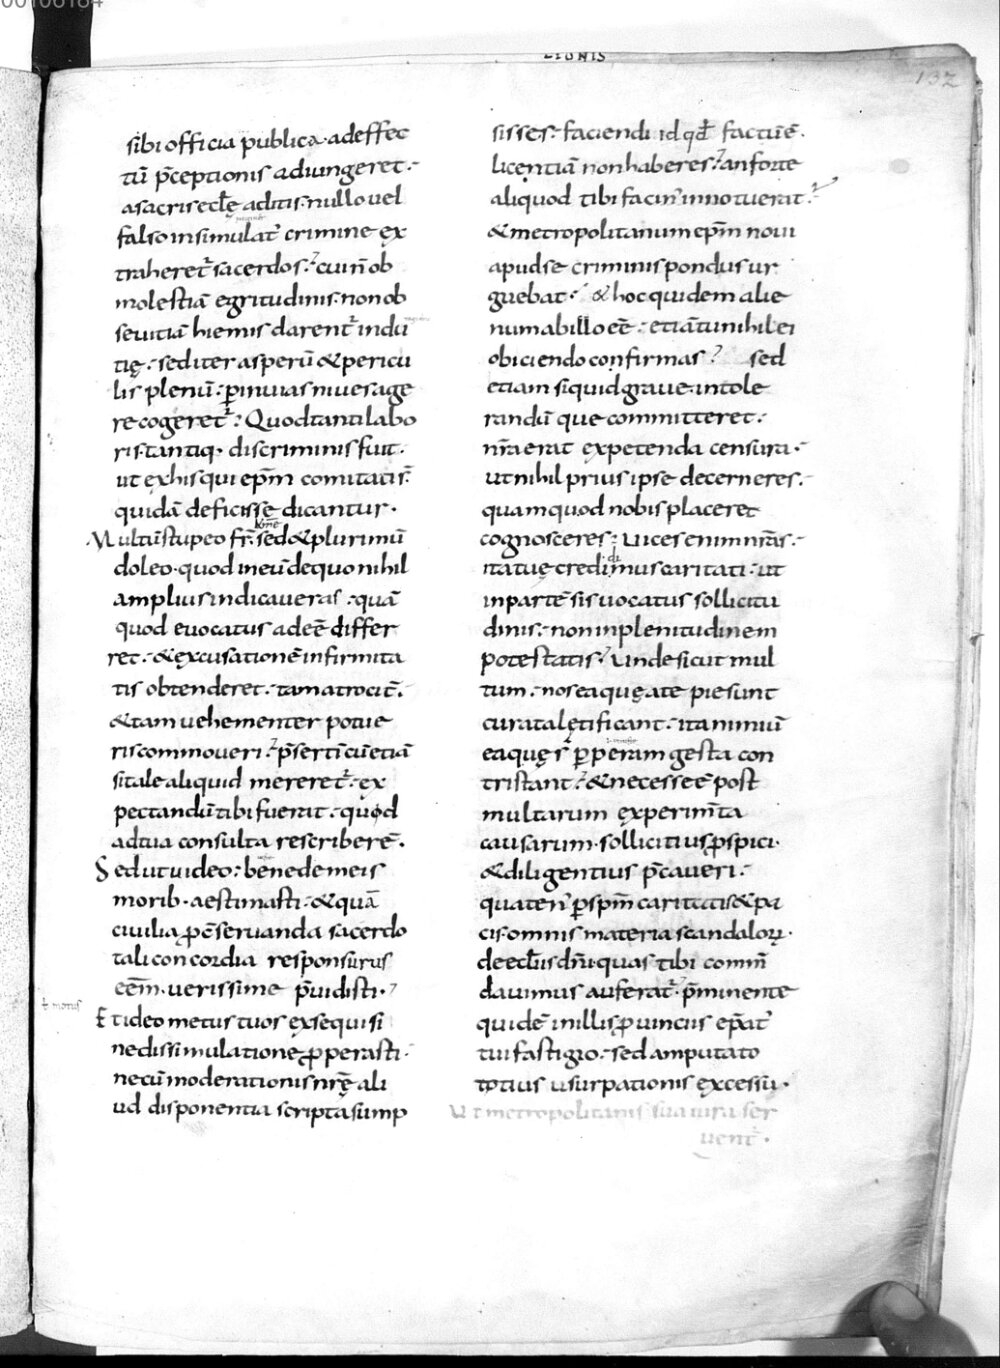 LEONIS
132
sibi officia publica· adeffec
tū p̄ceptionis adiungeret·
a sacris eccl̄ę aditis· nullo vel
falso insimulat᷒ crimine ex
traheret᷒ sacerdos? cui n̄ ob
molestiā egritudinis· non ob
sevitiā hiemis darent᷒ indu
tię· sed iter asperū & pericu
lis plenū· p̱ invias nives age
re cogeret᷒· Quod tanti labo
ris· tantiq· discriminis fuit·
ut ex his qui ep̄m comitati s̄
quidā deficisse dicantur·
Multū stupeo fr̄· sed & plurimū
doleo· quod in eū de quo nihil
amplius indicaveras· quā
quod evocatus ad eē differ
ret· & excusationē infirmita
tis obtenderet· tam atrocit̄·
& tam vehementer potue
ris commoveri? p̄sertī cū etiā
si tale aliquid mereret᷒· ex
pectandū tibi fuerat· quod
ad tua consulta rescriberē·
Sed ut video· bene de meis
morib· aestimasti· & quā
civilia ꝓ c̄servanda sacerdo
tali concordia responsurus
eēm· verissime p̄vidisti·
ł motus
Et ideo metus tuos exsequi si
ne dissimulatione ꝓperasti·
ne cū moderationis nr̄ę ali
ud disponentia scripta sump
sisses· faciendi id qd̄ factū ē·
licentiā non haberes? an forte
aliquod tibi facin᷒ innotuerat·
& metropolitanum ep̄m novi
apud se criminis pondus ur
guebat· & hoc quidem alie
num ab illo eē· etiā tu nihil ei
obiciendo confirmas? sed
etiam si quid grave intole
randū que committeret·
nr̄a erat expetenda censura·
ut nihil prius ipse decerneres·
quam quod nobis placeret
cognosceres· vices enim nr̄as·
ita tuę credidimus caritati· ut
in partē sis vocatus sollicitu
dinis· non in plenitudinem
potestatis? Unde sicut mul
tum· nos ea quę a te pie sunt
curata lętificant· ita nimiū
ea quę s̄ p̱peram gesta con
tristant? & necesse ē post
multarum experim̄ta
causarum· sollicitius ꝓspici·
& diligentius p̄caveri·
quaten᷒ p̱ sp̄m caritatis & pa
cis omnis materia scandaloꝝ·
de eccl̄iis dn̄i quas tibi comm̄
davimus auferat᷒· p̄minente
quidē in illis ꝓvinciis ep̄at᷒
tui fastigio· sed amputato
totius usurpationis excessu·
Ut metropolitanis sua iura ser
vent᷒·